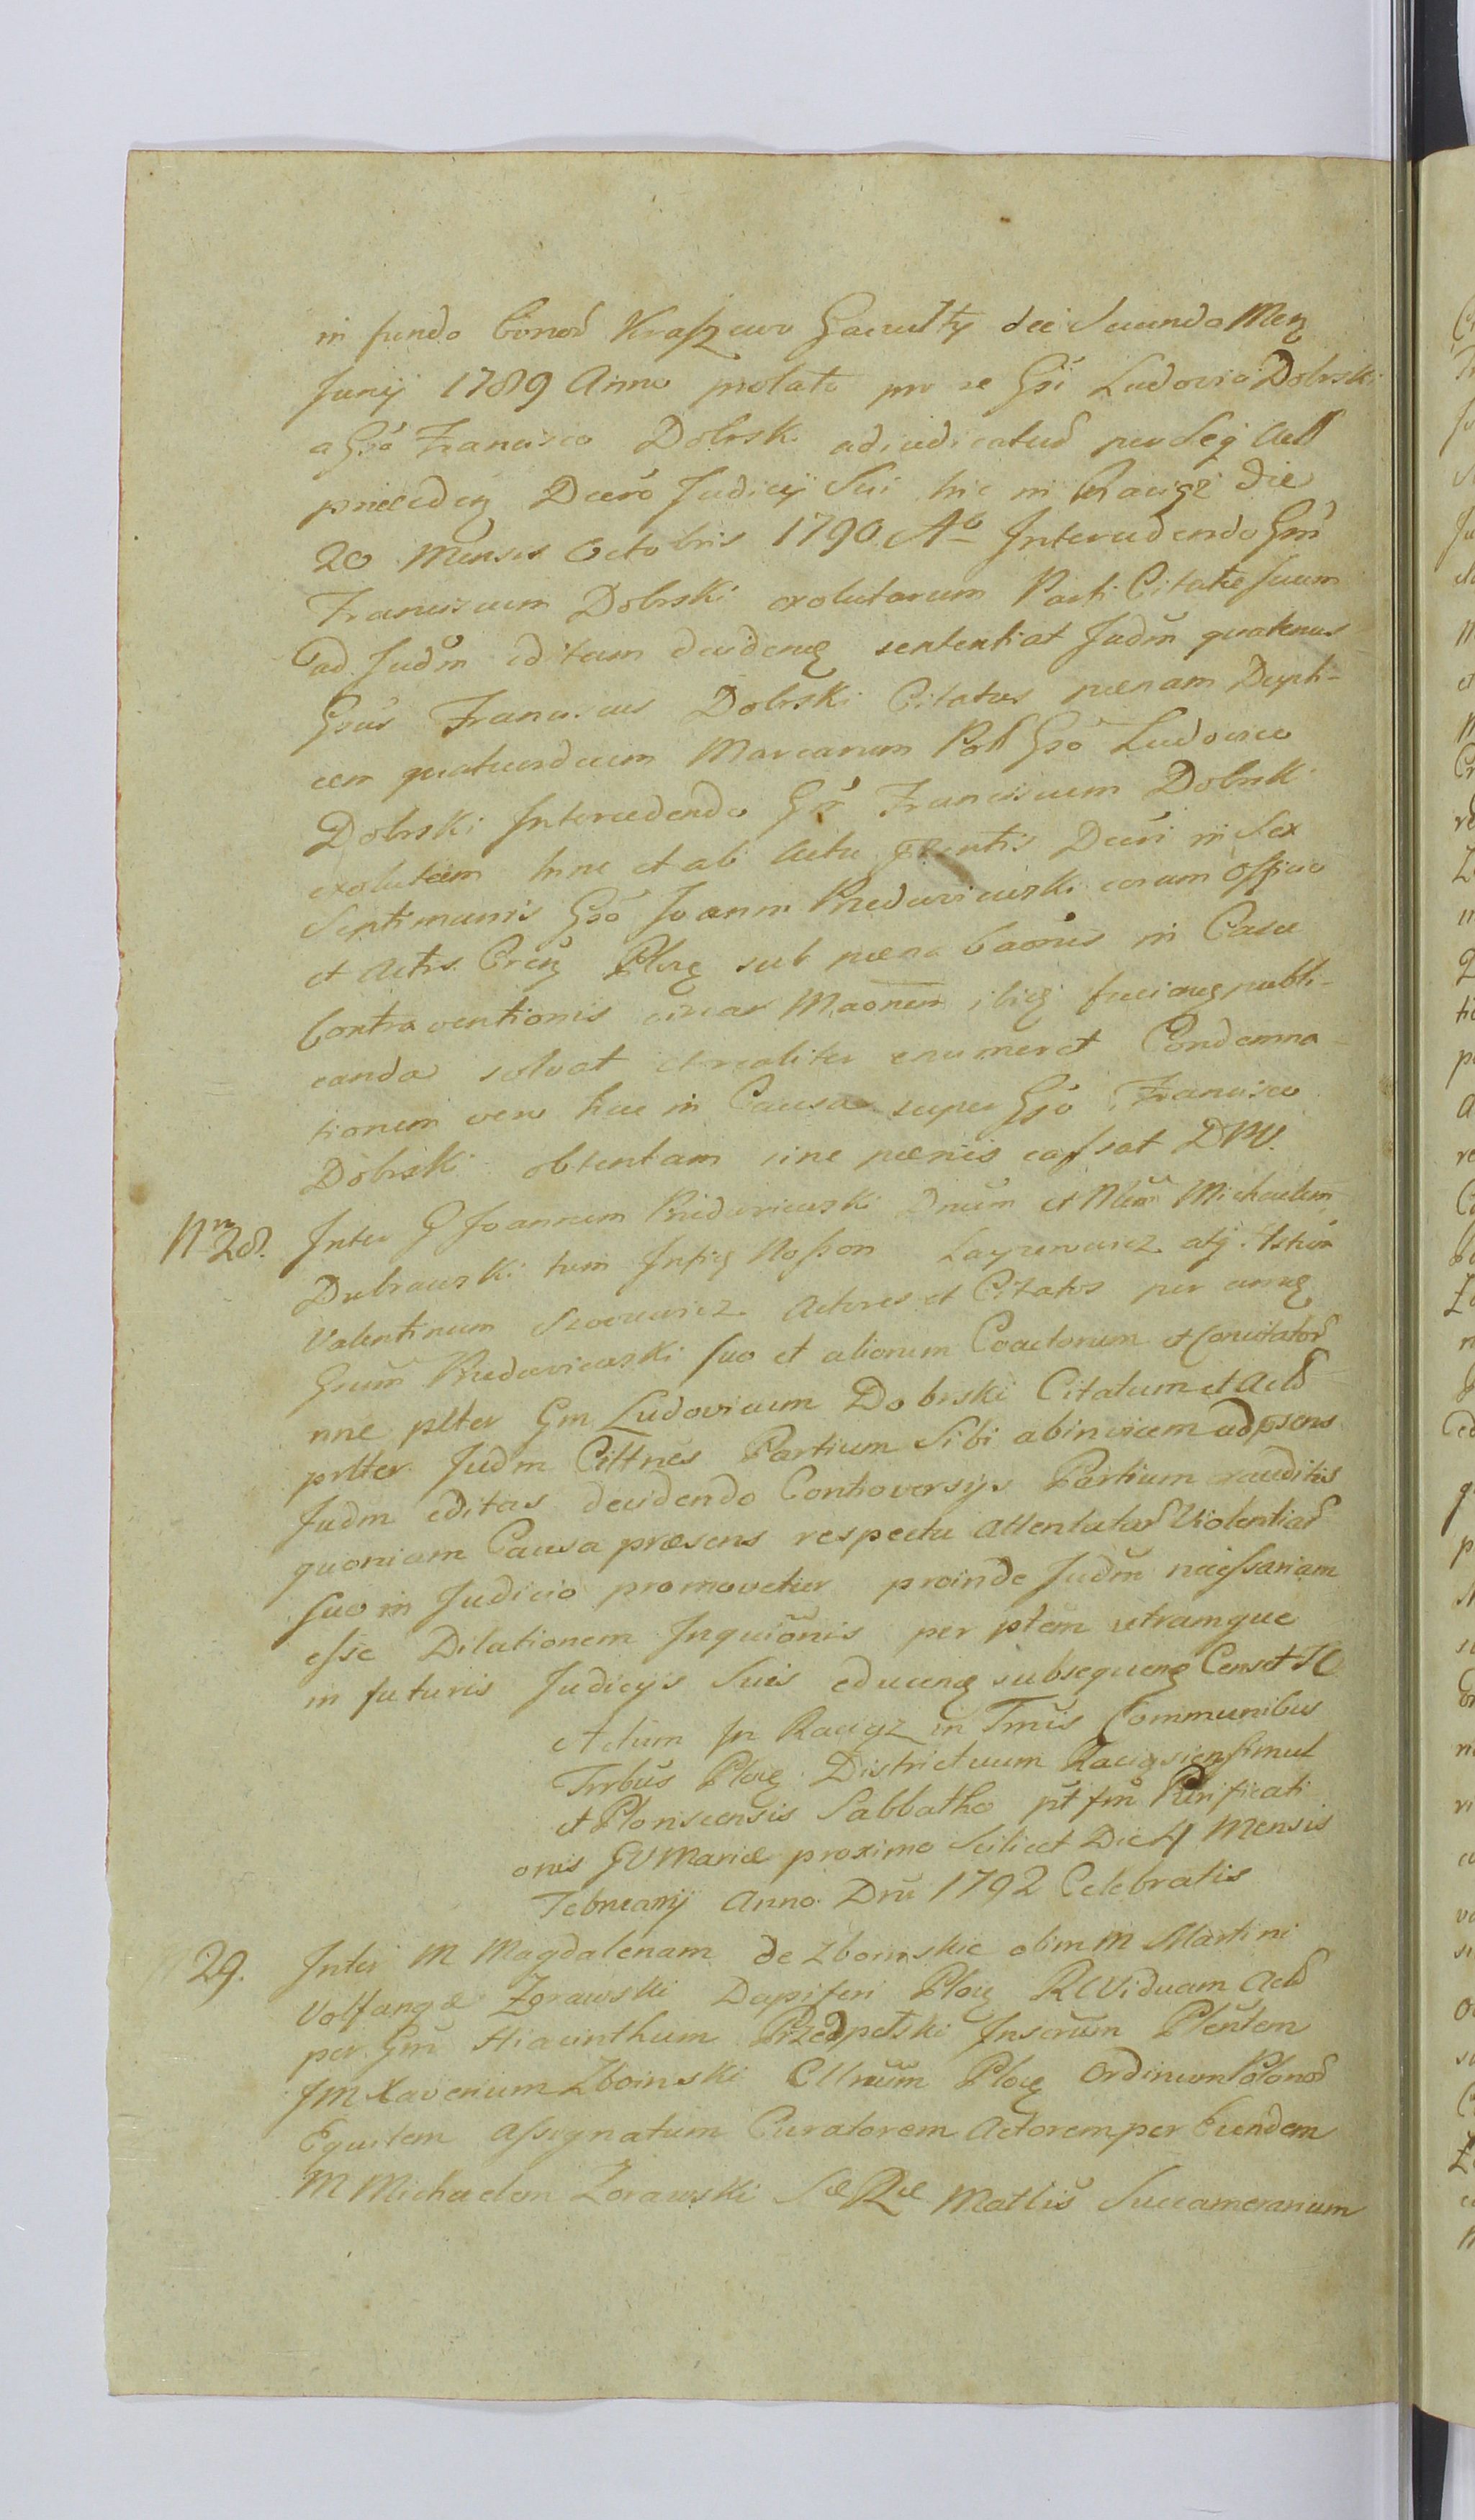 in fundo bonor Kraszewo Gaculty die Secunda Men
Junij 1789 Anno prolato pro se Gsi Ludovici Dobrski
a Gso Francisco Dobrski adiudicatur per Seq Act
præceden Decro Judicij Sui hic in Raciąż die
20 Mensis Octobris 1790 Ao Intercedendo Gm
Franciscum Dobrski exolutarum Parti Citatæ suum
ad Judm editam decidene sententiat Judm quatenus
Gsus Franciscus Dobrski Citatus pænam Dupli-
cem quatuordecim Marcarum Poll Gso Ludovico
Dobrski Intercedendo Gm Franciscum Dobrski
exolutam hinc et ab Actu pntis Decri in Sex
Septimanis Gso Joanni Priedwiewski coram Officio
et Actis Cren Ploce sub pæna banis in Casu
Contraventionis circa Maonem ibiq fucienę publi-
canda solvat et realiter enumeret Condemna-
tionem vero hac in Causa super Gso Francisco
Dobrski obtentam sine pænis cassat DMV.
Nrm 28. Inter G Joannem Priedwiewski Dnum et Nlum Michaelem
Dubrawski tum Infię Nosson Layzerowicz atq
Valentinum Actores et Citatos per eunę
Gnum Priedwiewski suo et aliorum Coactorum et Concitator
nne plter Gm Ludovicum Dobrski Citatum et Act
prlter Judm Cittnes Partium Sibi abinvicem ad psens
Judm editas decidendo Controversijs Partium exauditis
quoniam Causa præsens respectu Attentatar Violentiar
suo in Judicio promovetur proinde Judm necessariam
esse Dilationem Inquionis per ptem utramque
in futuris Judicijs Suis educenę subsequenę Censet
Actum In Raciąz in Tmis Communibus
Trrbus Ploce Districtuum Raciąziensi simul
et Plonscensis Sabbatho pt fm Purificati
onis GV Mariæ proximo Scilicet Die 4 Mensis
Februarij Anno Dni 1792 Celebratis
29. Inter M Magdalenam de Zboinskie olim M Martini
Volfangæ Zorawski Dapiferi Ploce RViduam Act
per Gm Hiacinthum Przedpełski Inserum Plentem
JM Xaverium Zboinski Cllnum Ploce Ordinum Polonor
Equitem assignatum Curatorem Actorem per Eundem
M Michaelem Zorawski Sæ Ræ Mattis Succamerarium